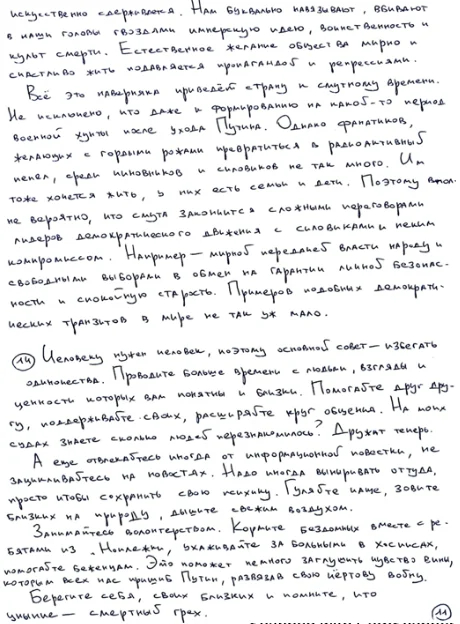 искусственно сдерживается. Нам буквально навязывают, вбивают
в наши головы гвоздями имперскую идею, воинственность и
культ смерти. Естественное желание общества мирно и
счастливо жить подавляется пропагандой и репрессиями.
Всё это наверняка приведёт страну к смутному времени.
Не исключено, что даже к формированию на какой-то период
военной хунты после ухода Путина. Однако фанатиков,
желающих с гордыми рожами превратиться в радиоактивный
пепел, среди чиновников и силовиков не так много. Им
тоже хочется жить, у них есть семьи и дети. Поэтому впол-
не вероятно, что смута закончится сложными переговорами
лидеров демократического движения с силовиками и неким
компромиссом. Например – мирной передачей власти народу и
свободными выборами в обмен на гарантии личной безопас-
ности и спокойную старость. Примеров подобных демократи-
ческих транзитов в мире не так уж мало.
14 Человеку нужен человек, поэтому основной совет – избегать
одиночества. Проводите больше времени с людьми, взгляды и
ценности которых вам понятны и близки. Помогайте друг дру-
гу, поддерживайте своих, расширяйте круг общения. На моих
судах знаете сколько людей перезнакомилось? Дружат теперь.
А еще отвлекайтесь иногда от информационной повестки, не
зацикливайтесь на новостях. Надо иногда выныривать оттуда,
просто чтобы сохранить свою психику. Гуляйте чаще, зовите
близких на природу, дышите свежим воздухом.
Занимайтесь волонтерством. Кормите бездомных вместе с ре-
бятами из „Ночлежки, ухаживайте за больными в хосписах,
помогайте беженцам. Это поможет немного заглушить чувство вины,
которым всех нас прищиб Путин, развязав свою чёртову войну.
Берегите себя, своих близких и помните, что
уныние – смертный грех.
11